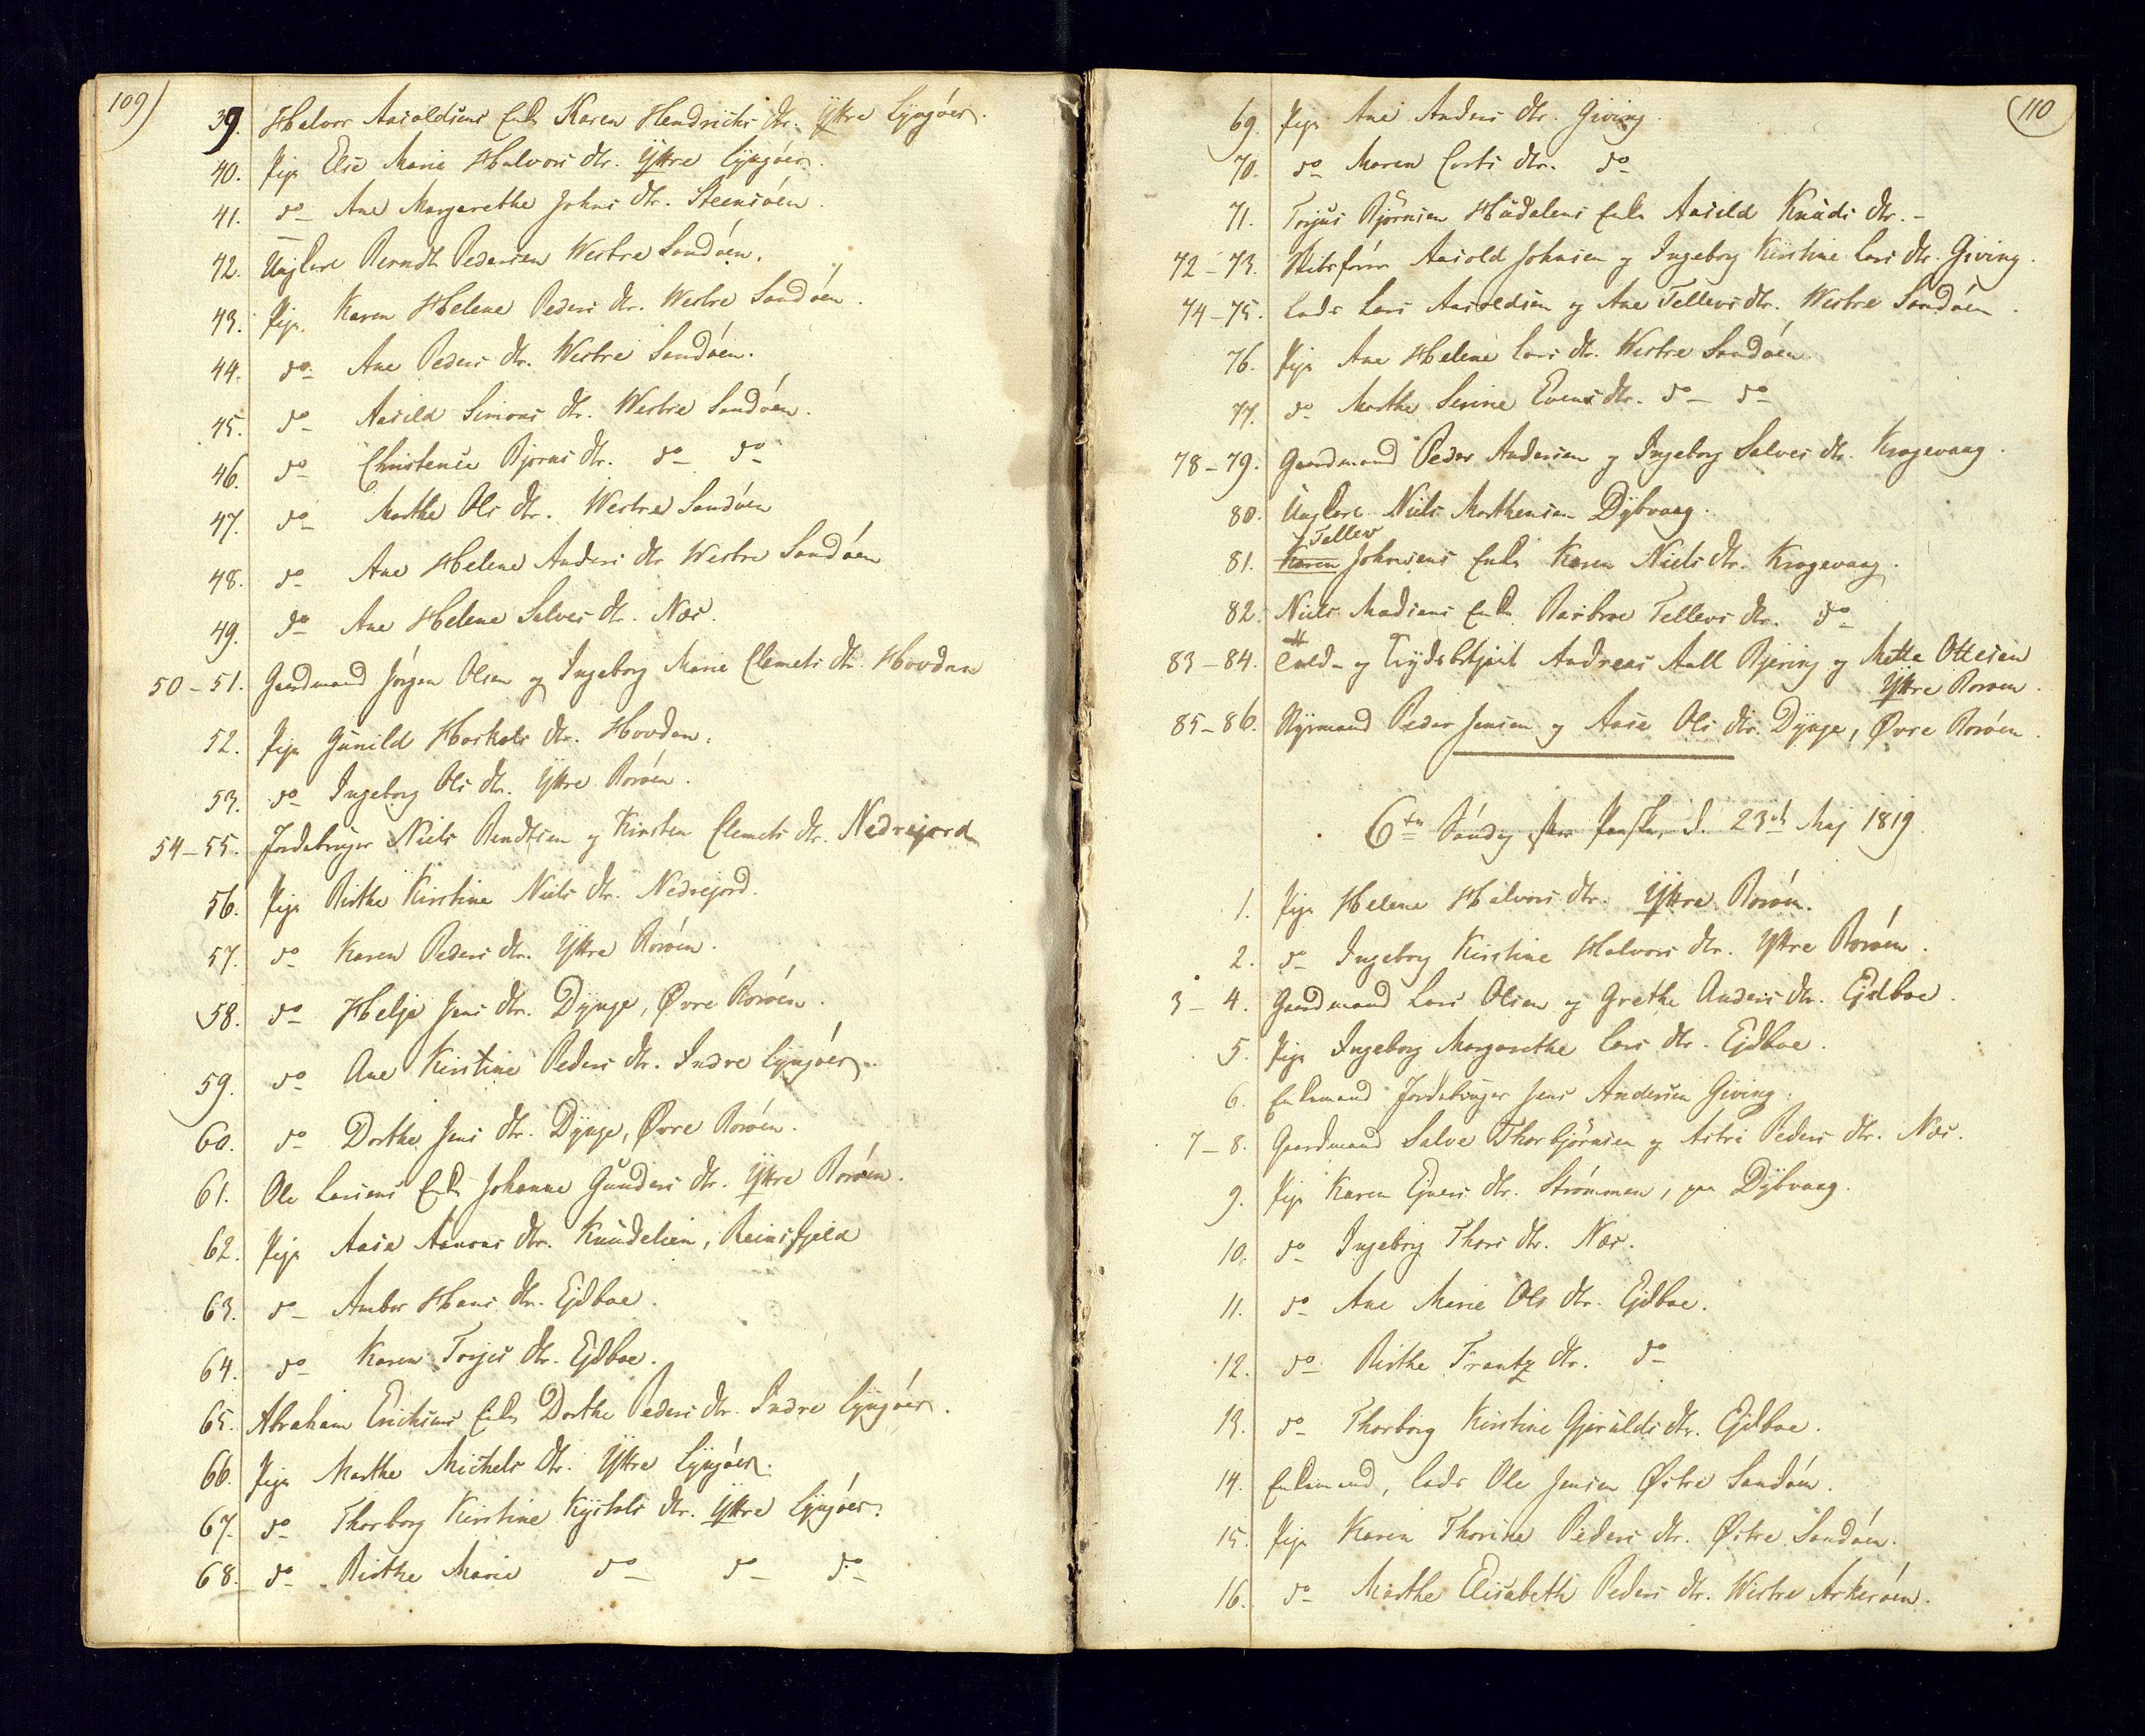 109)
39. Halvor Aasoldsens Enke Karen Hendrichs dtr. Yttre Lyngöer.
40. Pige Else Marie Halvors dtr. Yttre Lyngöer.
41. do Ane Margarethe Johns dtr. Steensöen.
42. Ungkarl Berndt Pedersen Westre Sandöen.
43. Pige Karen Helene Peders dtr. Westre Sandöen.
44. do Ane Peders dtr. Westre Sandöen.
45. do Aasild Simons dtr. Westre Sandöen.
46. do Christense Bjorns dtr. do do
47. do Marthe Ols dtr. Westre Sandöen
48. do Ane Helene Anders dtr Westre Sandöen
49. do Ane Helene Salves dtr. Næs.
50-51. Gaardmand Jörgen Olsen og Ingeborg Marie Clemets dtr. Hovdan
52. Pige Gunild Haskols dtr. Hovdan.
53. do Ingeborg Ols dtr. Yttre Boröen.
54-55. Jordebruger Niels Bendtsen og Kirsten Clemets dtr. Nedrejord
56. Pige Birthe Kirstine Niels dtr. Nedrejord.
57. do Karen Peders dtr. Yttre Boröen.
58. do Helje Jens dtr. Dynge, Øvre Boröen.
59. do Ane Kirstine Peders dtr. Indre Lyngöer.
60. do Dorthe Jens dtr. Dynge, Øvre Boröen.
61. Ole Larsens Enke Johanne Gunders dtr. Yttre Boröen.
62. Pige Aase Aanons dtr. Knudelien, Reinsfjeld
63. do Ambor Hans dtr. Ejdboe.
64. do Karen Torjes dtr. Ejdboe.
65. Abraham Erichsens Enke Dorthe Peders dtr. Indre Lyngöer.
66. Pige Marthe Michels dtr. Yttre Lyngöer.
67. do Thorborg Kirstine Kystels dtr. Yttre Lyngöer.
68. do Birthe Marie do do do
110
69. Pige Ane Anders dtr. Giving.
70. do Maren Corts dtr. do
71. Torjus Björnsen Hüdalens Enke Aasild Knuds dtr. -
72-73. Skibsförer Aasold Johnsen og Ingeborg Kirstine Lars dtr. Giving.
74-75. Lods Lars Aasoldsen og Ane Tellevs dtr. Westre Sandöen.
76. Pige Ane Helene Lars dtr. Westre Sandöen.
77. do Marthe Serine Evens dtr. do do
78-79. Gaardmand Peder Andersen og Ingeborg Salves dtr. Krogevaag.
80. Ungkarl Niels Mathensen Dybvaag.
Tellev
81. Karen Johnsens Enke Karen Niels dtr. Krogevaag.
82. Niels Madsens Enke Barbroe Tellevs dtr. do
83-84. Told- og Andreas Aall Bjering og Mette Ottesen
Yttre Boroen.
85-86. Nyemand Peder Jensen og Aase Ols dtr. Dynge, Øvre Boröen.
6te Söndag efter Paaske d. 23de Maj 1819.
1. Pige Helene Halvors dtr. Yttre Boröen.
2. do Ingeborg Kirstine Halvors dtr. Yttre Boröen.
3-4. Gaardmand Lars Olsen og Grethe Anders dtr. Ejdboe.
5. Pige Ingeborg Margarethe Lars dtr. Ejdboe.
6. Enkemand Jordebruger Jens Andersen Giving.
7-8. Gaardmand Salve Thorbjörnsen og Astri Peders dtr. Næs.
9. Pige Karen Ejvers dtr. Strömmen, paa Dybvaag.
10. do Ingeborg Thors dtr. Næs.
11. do Ane Marie Ols dtr. Ejdboe.
12. do Birthe Frantz dtr. do
13. do Thorborg Kirstine Gjeruldsdtr. Ejdboe.
14. Enkemand, Lods Ole Jensen Østre Sandöen.
15. Pige Karen Thorine Peders dtr. Østre Sandöen.
16. do Marthe Elisabeth Peders dtr. Westre Askeröen.